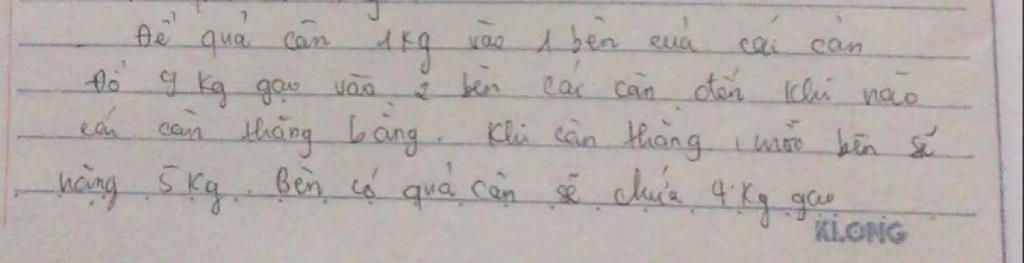 Để quả cân 1kg vào 1 bên của cái cân
Đổ 9 kg gạo vào 2 bên cái cân đến khi nào
cái cân thăng bằng. Khi cân thăng, mỗi bên sẽ
nặng 5 kg. Bên có quả cân sẽ chứa 4 kg gạo
KLONG